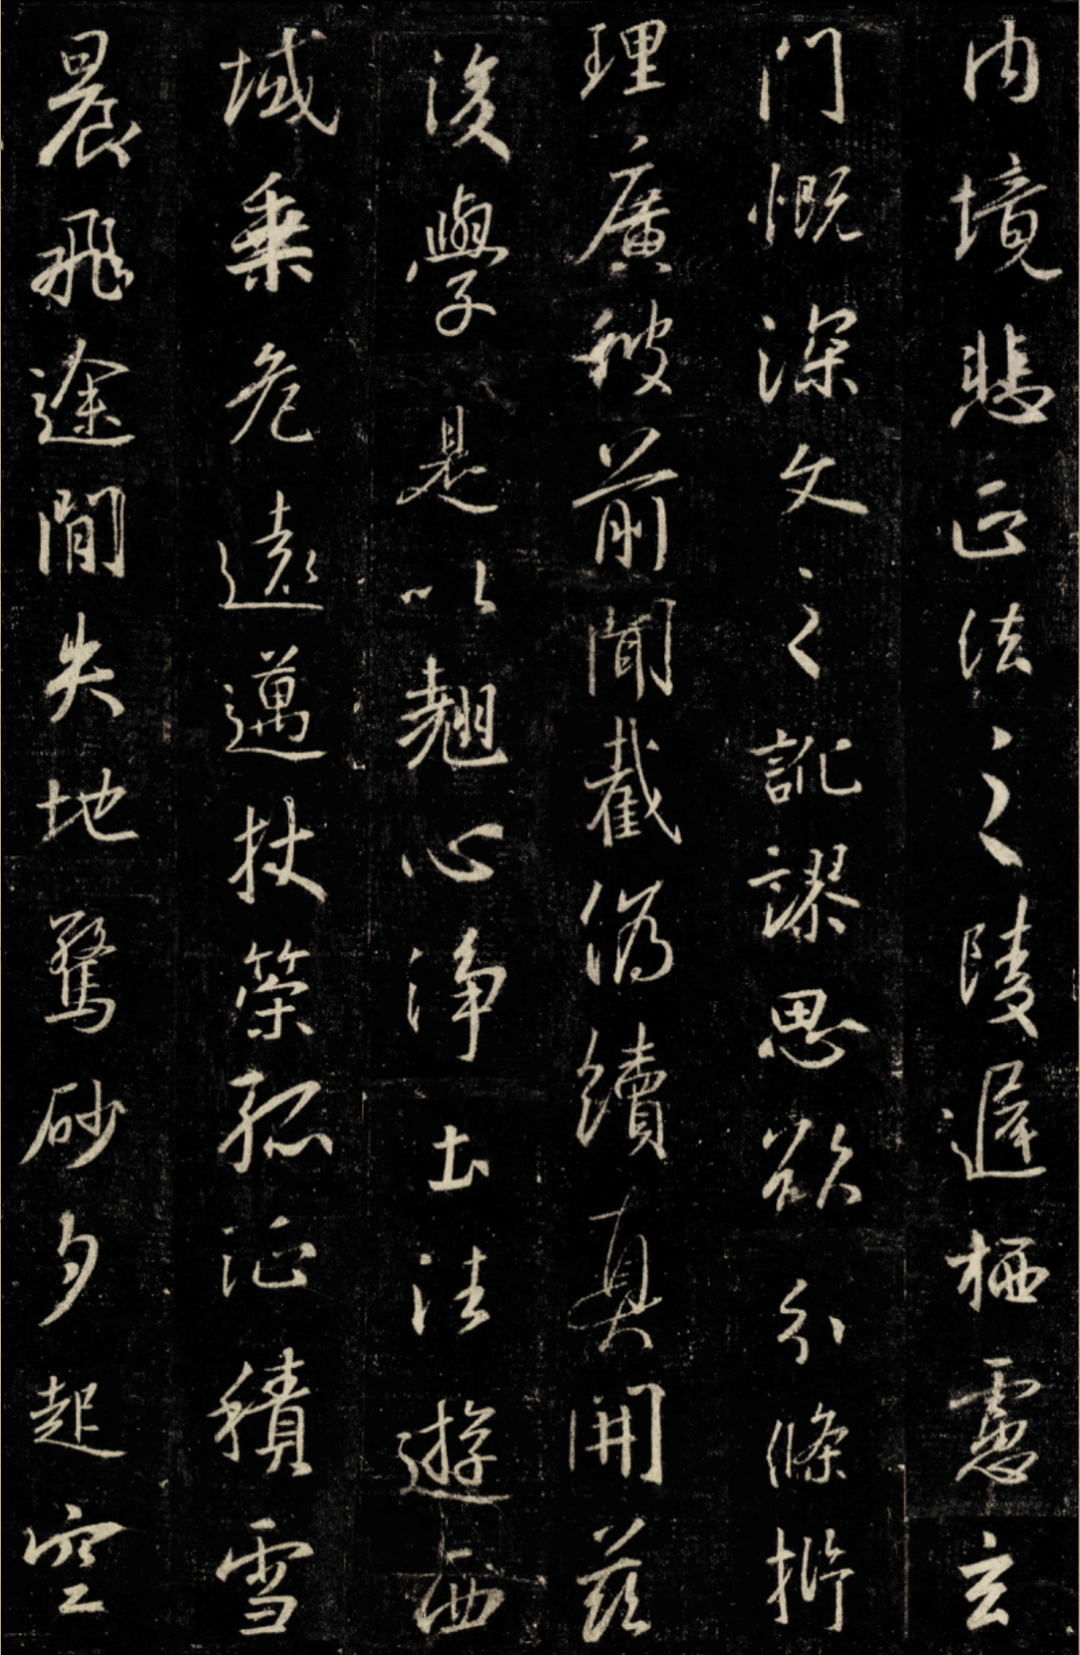 内境悲正法之陵遲栖慮玄
門慨深文之訛謬思欲分條析
理廣彼前聞截偽續真開茲
後學是以翹心淨土法遊西
域乘危遠邁杖策孤征積雪
晨飛途間失地驚砂夕起空